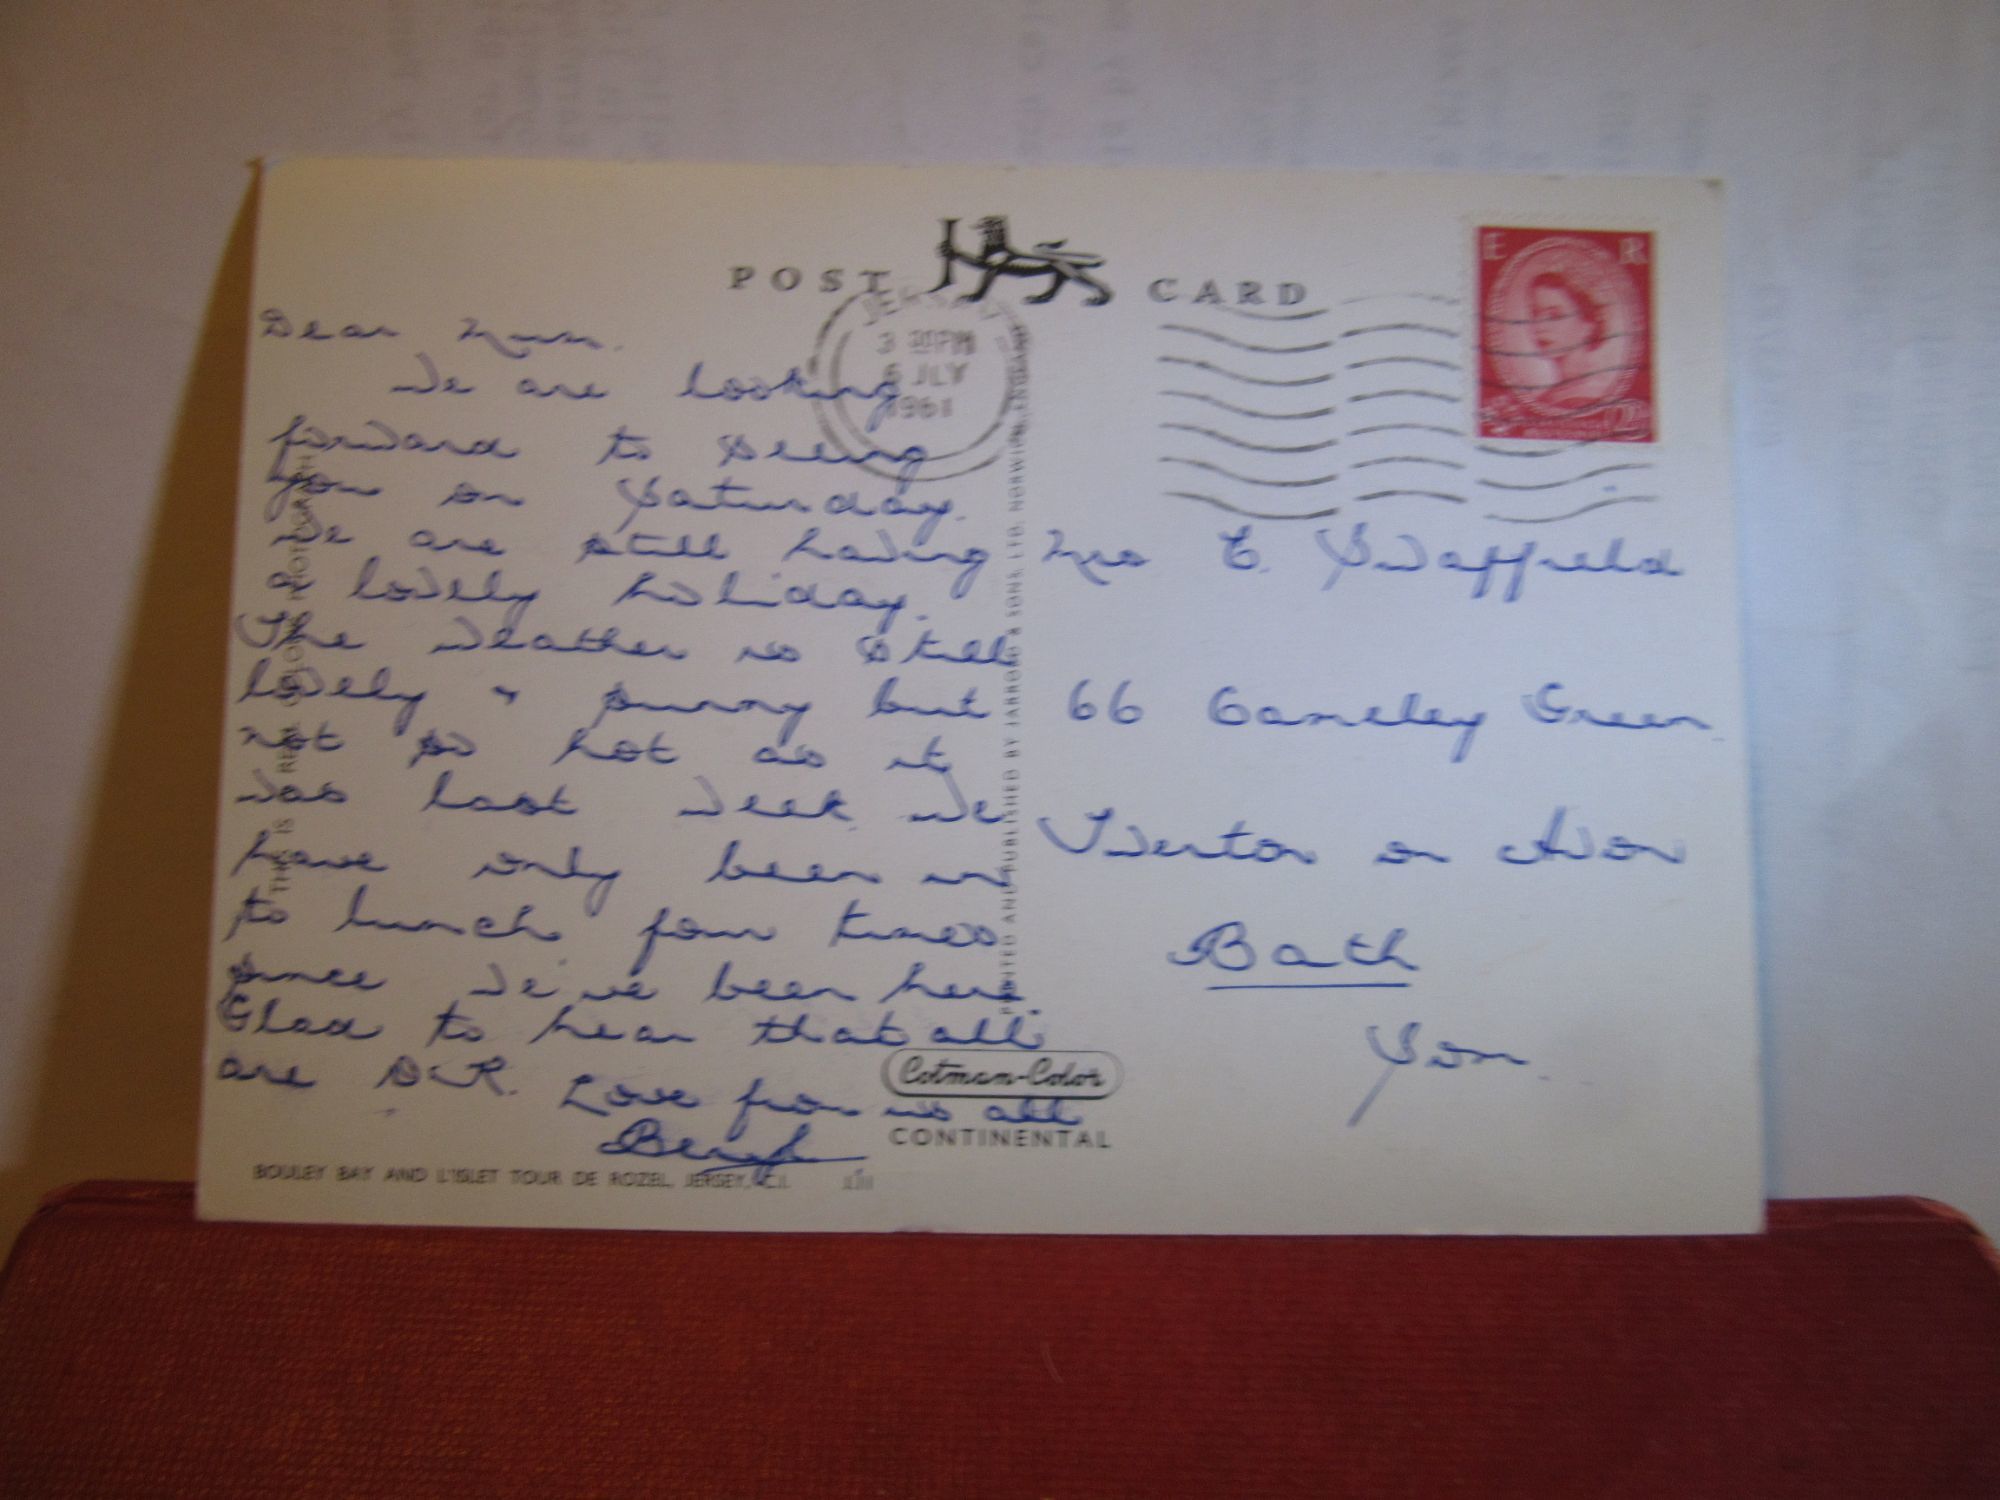 POST CARD
JERSEY
3 30PM
5 JLY
1961
E R
Dear Mum.
We are looking
forward to seeing
you on Saturday.
We are still having
a lovely holiday.
The weather is still
lovely & sunny but
not so hot as it
was last week. We
have only been in
to lunch four times
since we've been here.
Glad to hear that all
are O.K. Love from us all
Beryl
Mrs E. Swaffield
66 Cameley Green
Twerton on Avon
Bath
Som.
THIS IS A REAL COLOUR PHOTOGRAPH
PRINTED AND PUBLISHED BY JARROLD & SONS LTD. NORWICH, ENGLAND
Cotman-Color
CONTINENTAL
BOULEY BAY AND L'ISLET TOUR DE ROZEL, JERSEY, C.I.